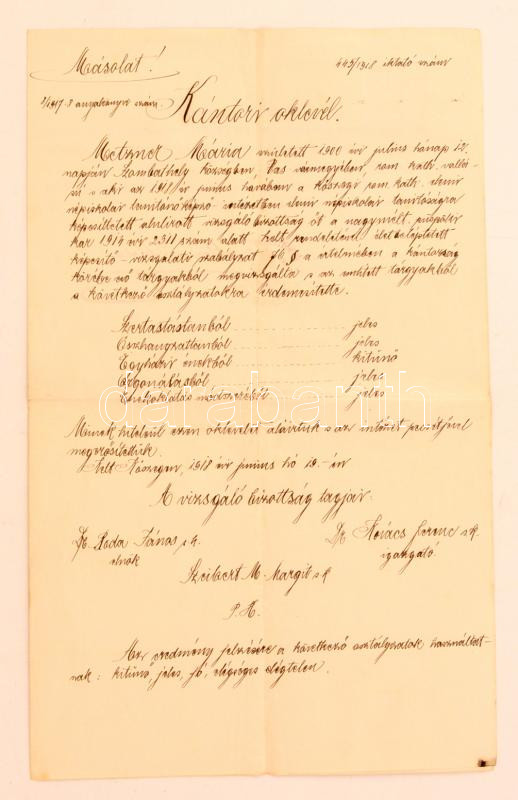 Másolat!
445/1918 iktató szám
3/1917-8 anyakönyvi szám.
Kántori oklevél.
Metzner Mária született 1900 év július hónap 12.
napján Szombathely községben, Vas vármegyében, rom. kath. vallá-
sú s aki az 1918 év június havában a kőszegi rom. kath. elemi
népiskolai tanítónőképző-intézetben elemi népiskolai tanítóságra
képesíttetett alulírott vizsgáló bizottság őt a nagymélt. püspöki
kar 1914 évi 2311 szám alatt kelt rendeletével életbeléptetett
képesítő-vizsgálati szabályzat 76 § a értelmében a kántorság
körébe eső tárgyakból megvizsgálta s az említett tárgyakból
a következő osztályzatokra érdemesítette.
Szertartástanból jeles
Összhangzattanból jeles
Egyházi énekből kitünő
Orgonálásból jeles
Énekoktatás módszeréből jeles
Minek hiteléül ezen oklevelet aláírtuk s az intézet pecsétjével
megerősítettük.
Kelt Kőszegen, 1918 évi június hó 19-én
A vizsgáló bizottság tagjai:
Dr. Roda János s.k. Dr. Kovács Ferenc s.k.
elnök igazgató.
Szeibert M. Margit s.k
P. H.
Az eredmény jelzésére a következő osztályzatok használtat-
nak: kitünő, jeles, jó, elégséges elégtelen.
darabanth